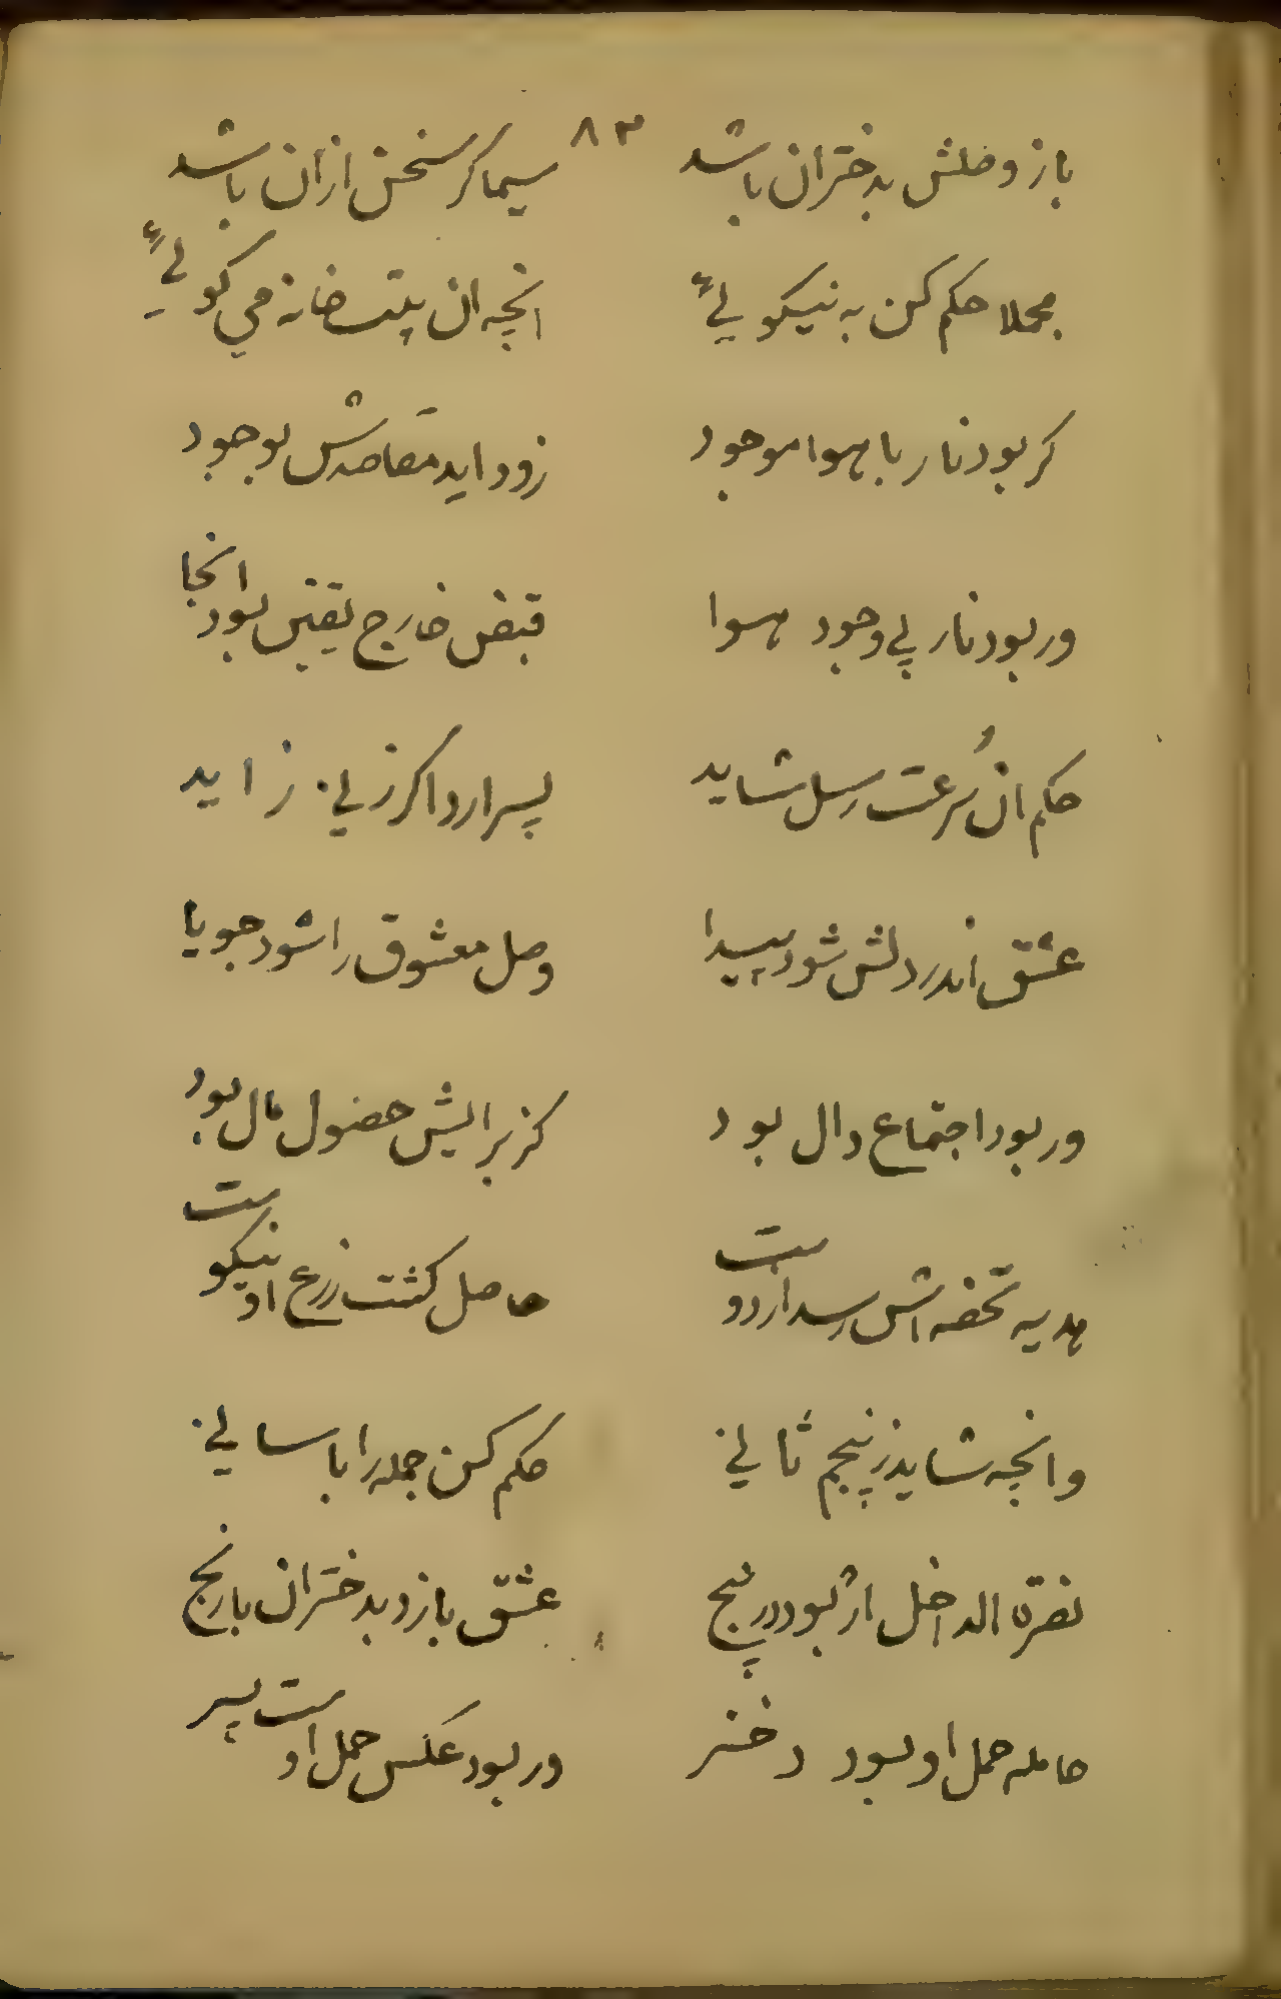 ۸۳
باز وصلش بدختران باشد سیما کر سخن ازان باشد
مجملا حکم کن به نیکویٔی انچه ان بیت خانه می کویٔی
کر بود نار با هوا موجود زود اید مقاصدش بوجود
ور بود نار بی وجود هوا قبض خارج یقین بود انجا
حکم ان سُرعت رسل شاید پسر ارد اکر زنی زاید
عشق اندر دلش شود پیدا وصل معشوق را شود جویا
ور بود اجتماع دال بود کز برایش حضول مال بود
هدیه تحفه اش رسد از دوست حاصل کشت زرع او نیکوست
وانچه شاید ز پنجم ثانی حکم کن جمله را باسانی
نصرة الداخل ار بود در پنج عشق بازد بدختران بارنج
حامله حمل او بود دختر ور بود عکس حمل اوست پسر